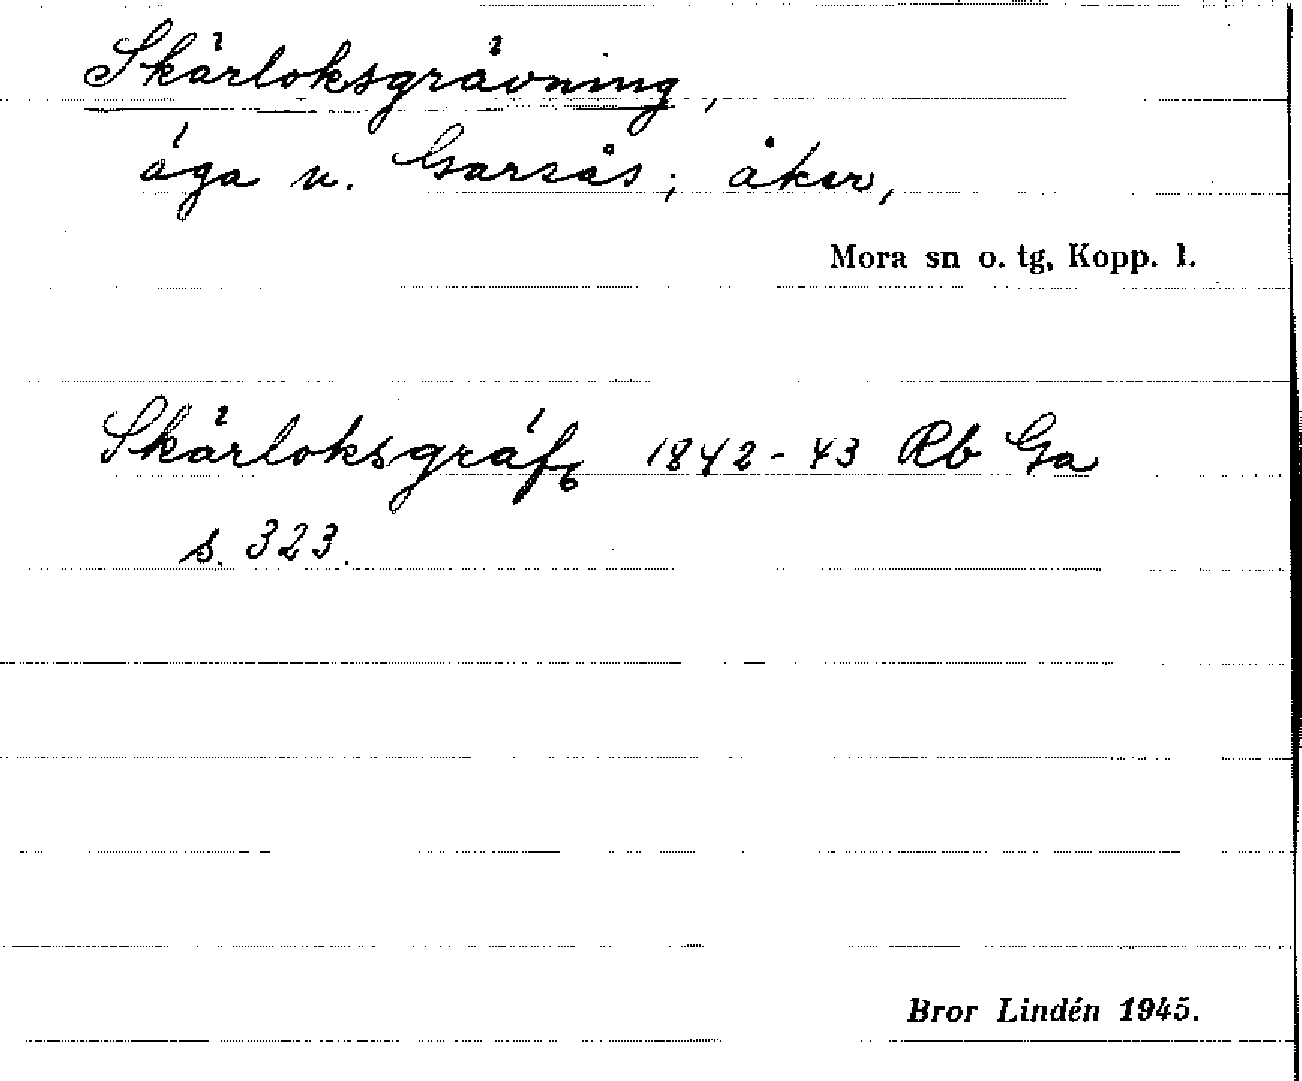 Skärloksgrävning,
äga u. Garsås; åker,
Mora sn o. tg, Kopp. l.
Skärloksgräfg 1842-43 Rb Ga
s. 323.
Bror Lindén 1945.